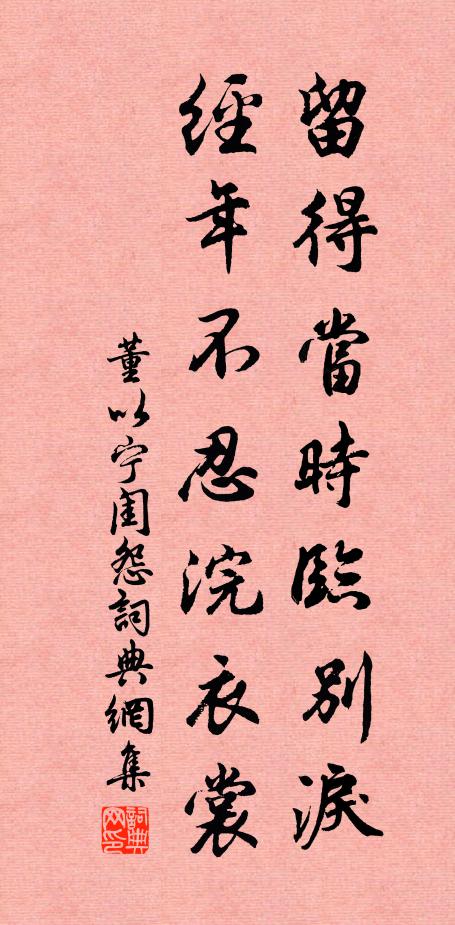 留得當時臨別淚
經年不忍浣衣裳
董以宁闺怨詞典網集
詞典網印